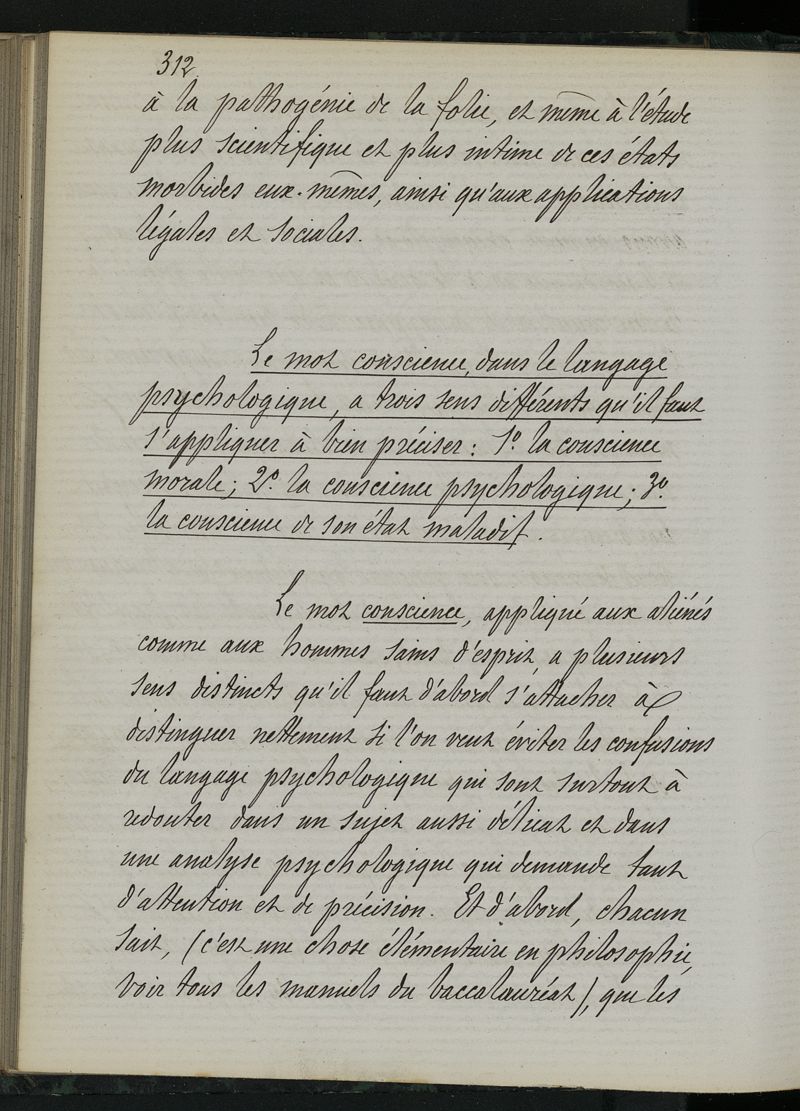 312
à la pathogénie de la folie, et même à l'étude
plus scientifique et plus intime de ces états
morbides eux-mêmes, ainsi qu'aux applications
légales et sociales.
Le mot conscience, dans le langage
psychologique, a trois sens différents qu'il faut
s'appliquer à bien préciser : 1º la conscience
morale ; 2º. la conscience psychologique ; 3º.
la conscience de son état maladif.
Le mot conscience, appliqué aux aliénés
comme aux hommes sains d'esprit, a plusieurs
sens distincts qu'il faut d'abord s'attacher à
distinguer nettement si l'on veut éviter les confusions
du langage psychologique qui sont surtout à
redouter dans un sujet aussi délicat et dans
une analyse psychologique qui demande tant
d'attention et de précision. Et d'abord, chacun
sait, (c'est une chose élémentaire en philosophie,
voir tous les manuels du baccalauréat), que les